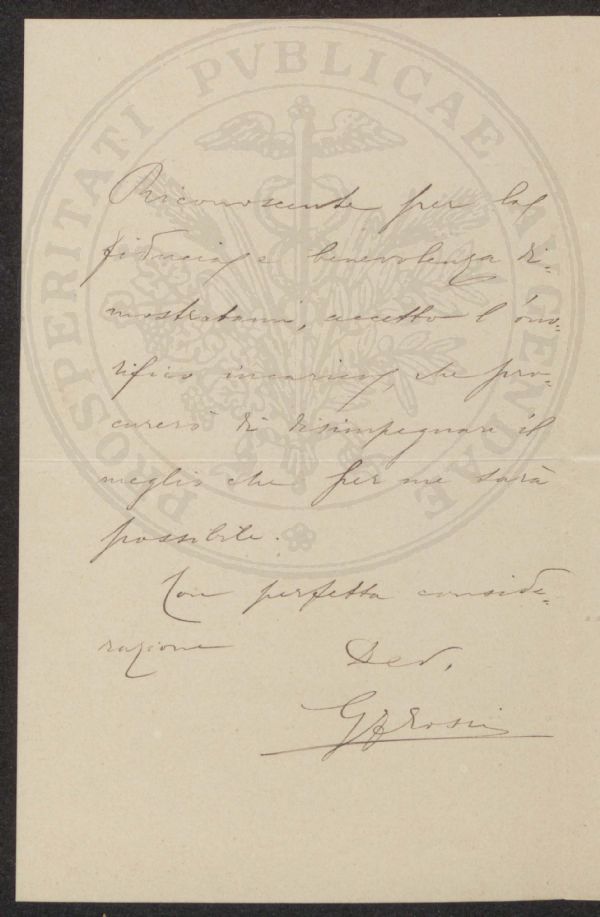 PROSPERITATI PVBLICAE AVGENDAE
Riconoscente per la
fiducia e benevolenza di-
mostratami, accetto l'ono-
rifico incarico, che pro-
curerò di disimpegnare il
meglio che per me sarà
possibile.
Con perfetta conside-
razione
Dev.
Rossi